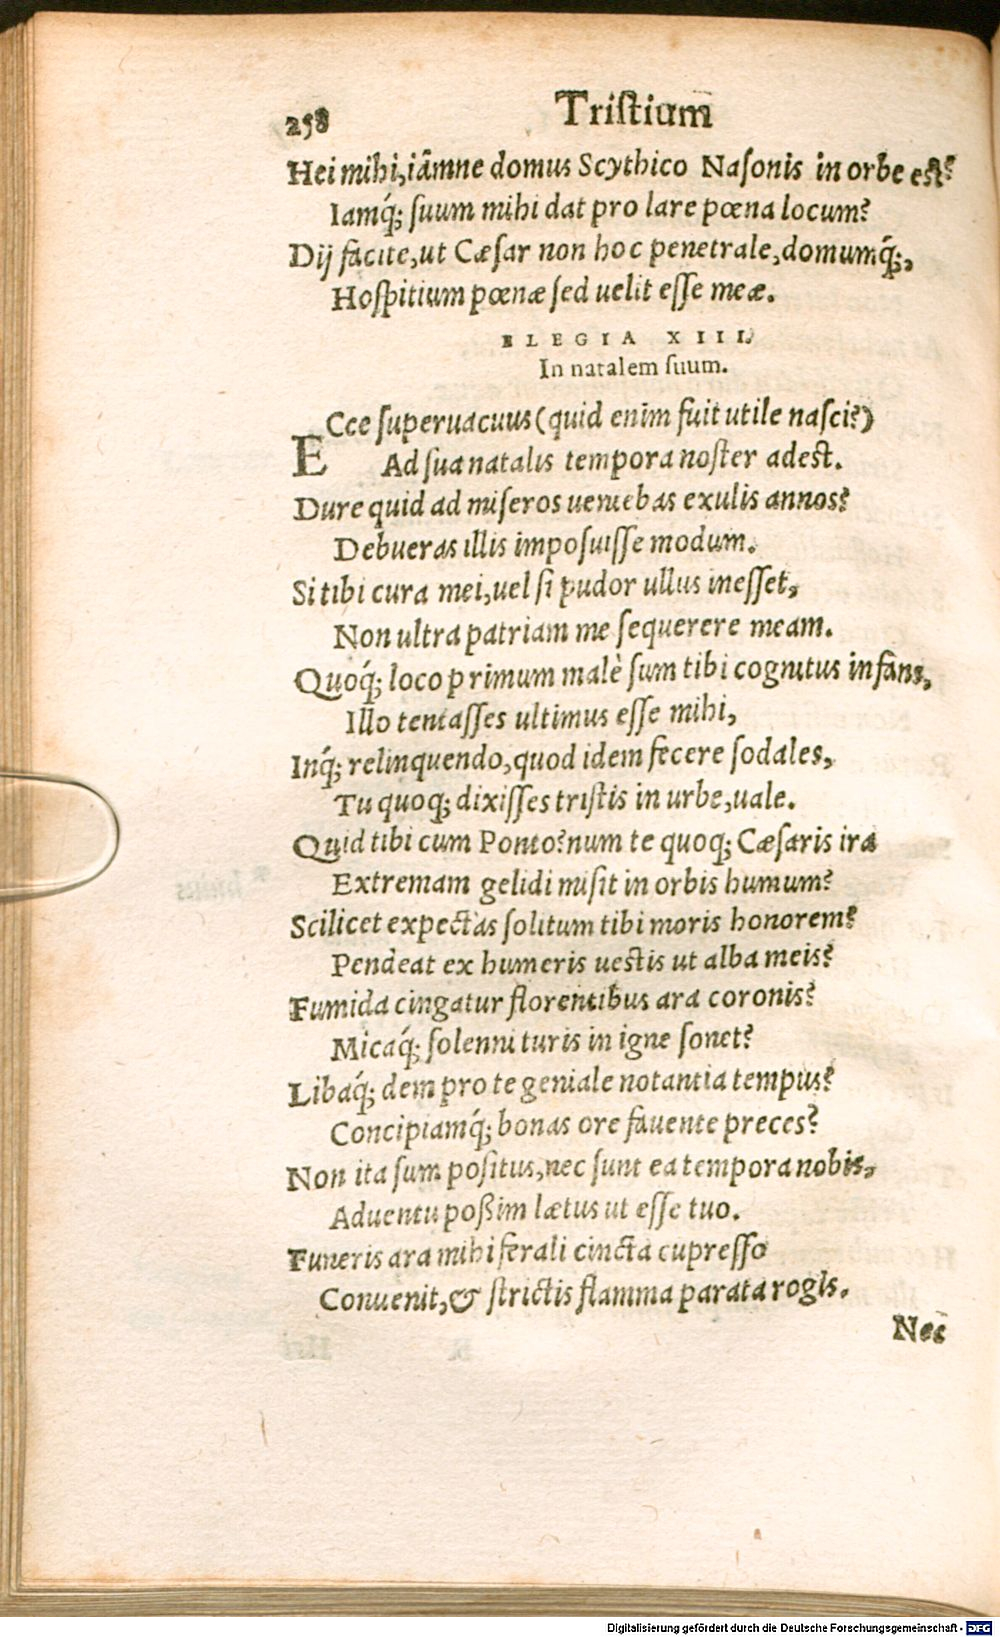 258 Tristium
Hei mihi, iâmne domus Scythico Nasonis in orbe est?
Iamq́; suum mihi dat pro lare pœna locum?
Dij facite, ut Cæsar non hoc penetrale, domumq́;,
Hospitium pœnæ sed uelit esse meæ.
ELEGIA XIII.
In natalem suum.
ECce superuacuus (quid enim fuit utile nasci?)
Ad sua natalis tempora noster adest.
Dure quid ad miseros ueniebas exulis annos?
Debueras illis imposuisse modum.
Si tibi cura mei, uel si pudor ullus inesset,
Non ultra patriam me sequerere meam.
Quoq́; loco primum malè sum tibi cognitus infans,
Illo tentasses ultimus esse mihi,
Inq́; relinquendo, quod idem fecere sodales,
Tu quoq; dixisses tristis in urbe, uale.
Quid tibi cum Ponto? num te quoq; Cæsaris ira
Extremam gelidi misit in orbis humum?
Scilicet expectas solitum tibi moris honorem?
Pendeat ex humeris uestis ut alba meis?
Fumida cingatur florentibus ara coronis?
Micaq́; solenni turis in igne sonet?
Libaq́; dem pro te geniale notantia tempus?
Concipiamq́; bonas ore fauente preces?
Non ita sum positus, nec sunt ea tempora nobis,
Aduentu poßim lætus ut esse tuo.
Funeris ara mihi ferali cincta cupresso
Conuenit, & strictis flamma parata rogis.
Nec
Digitalisierung gefördert durch die Deutsche Forschungsgemeinschaft - DFG